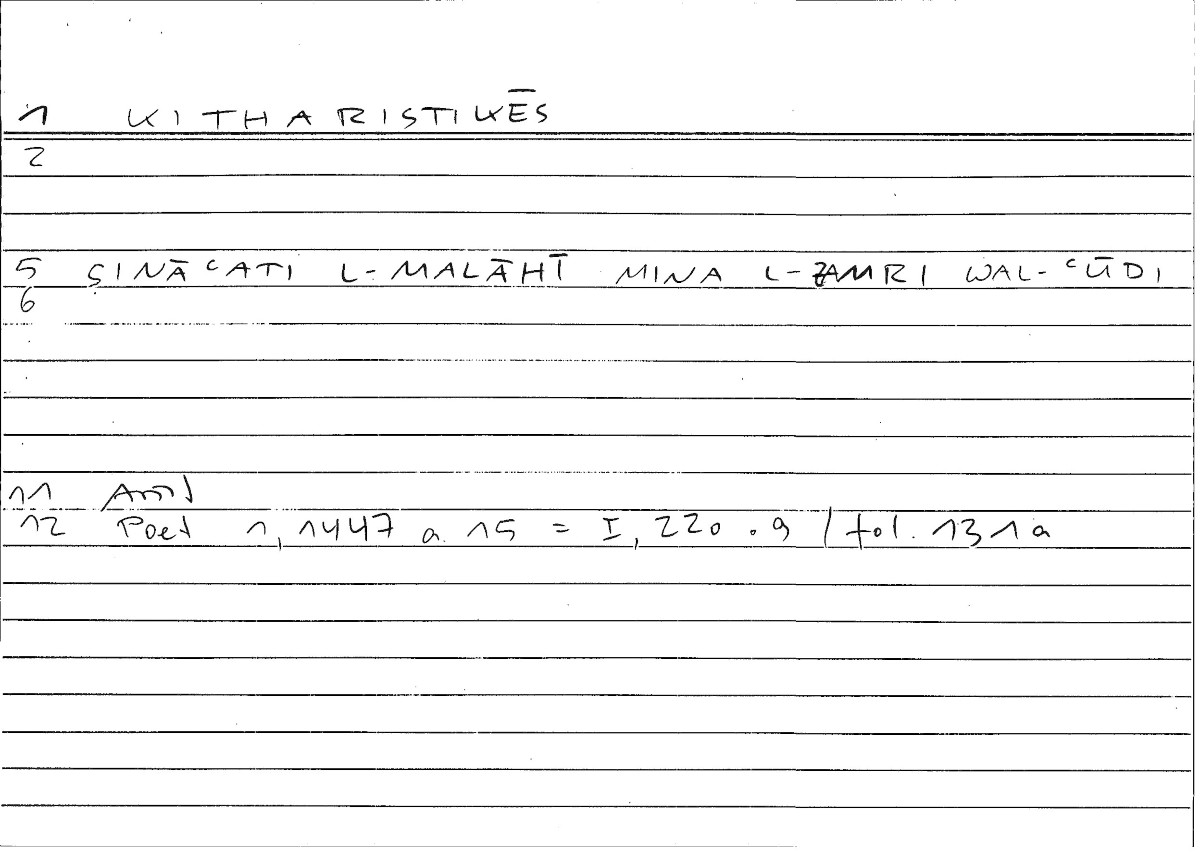 1 KITHARISTIKĒS
2
5 ṢINĀʿATI L-MALĀHĪ MINA L-ZAMRI WAL-ʿŪDI
6
11 Arist
12 Poet 1, 1447 a 15 = I, 220.9 / fol. 131a